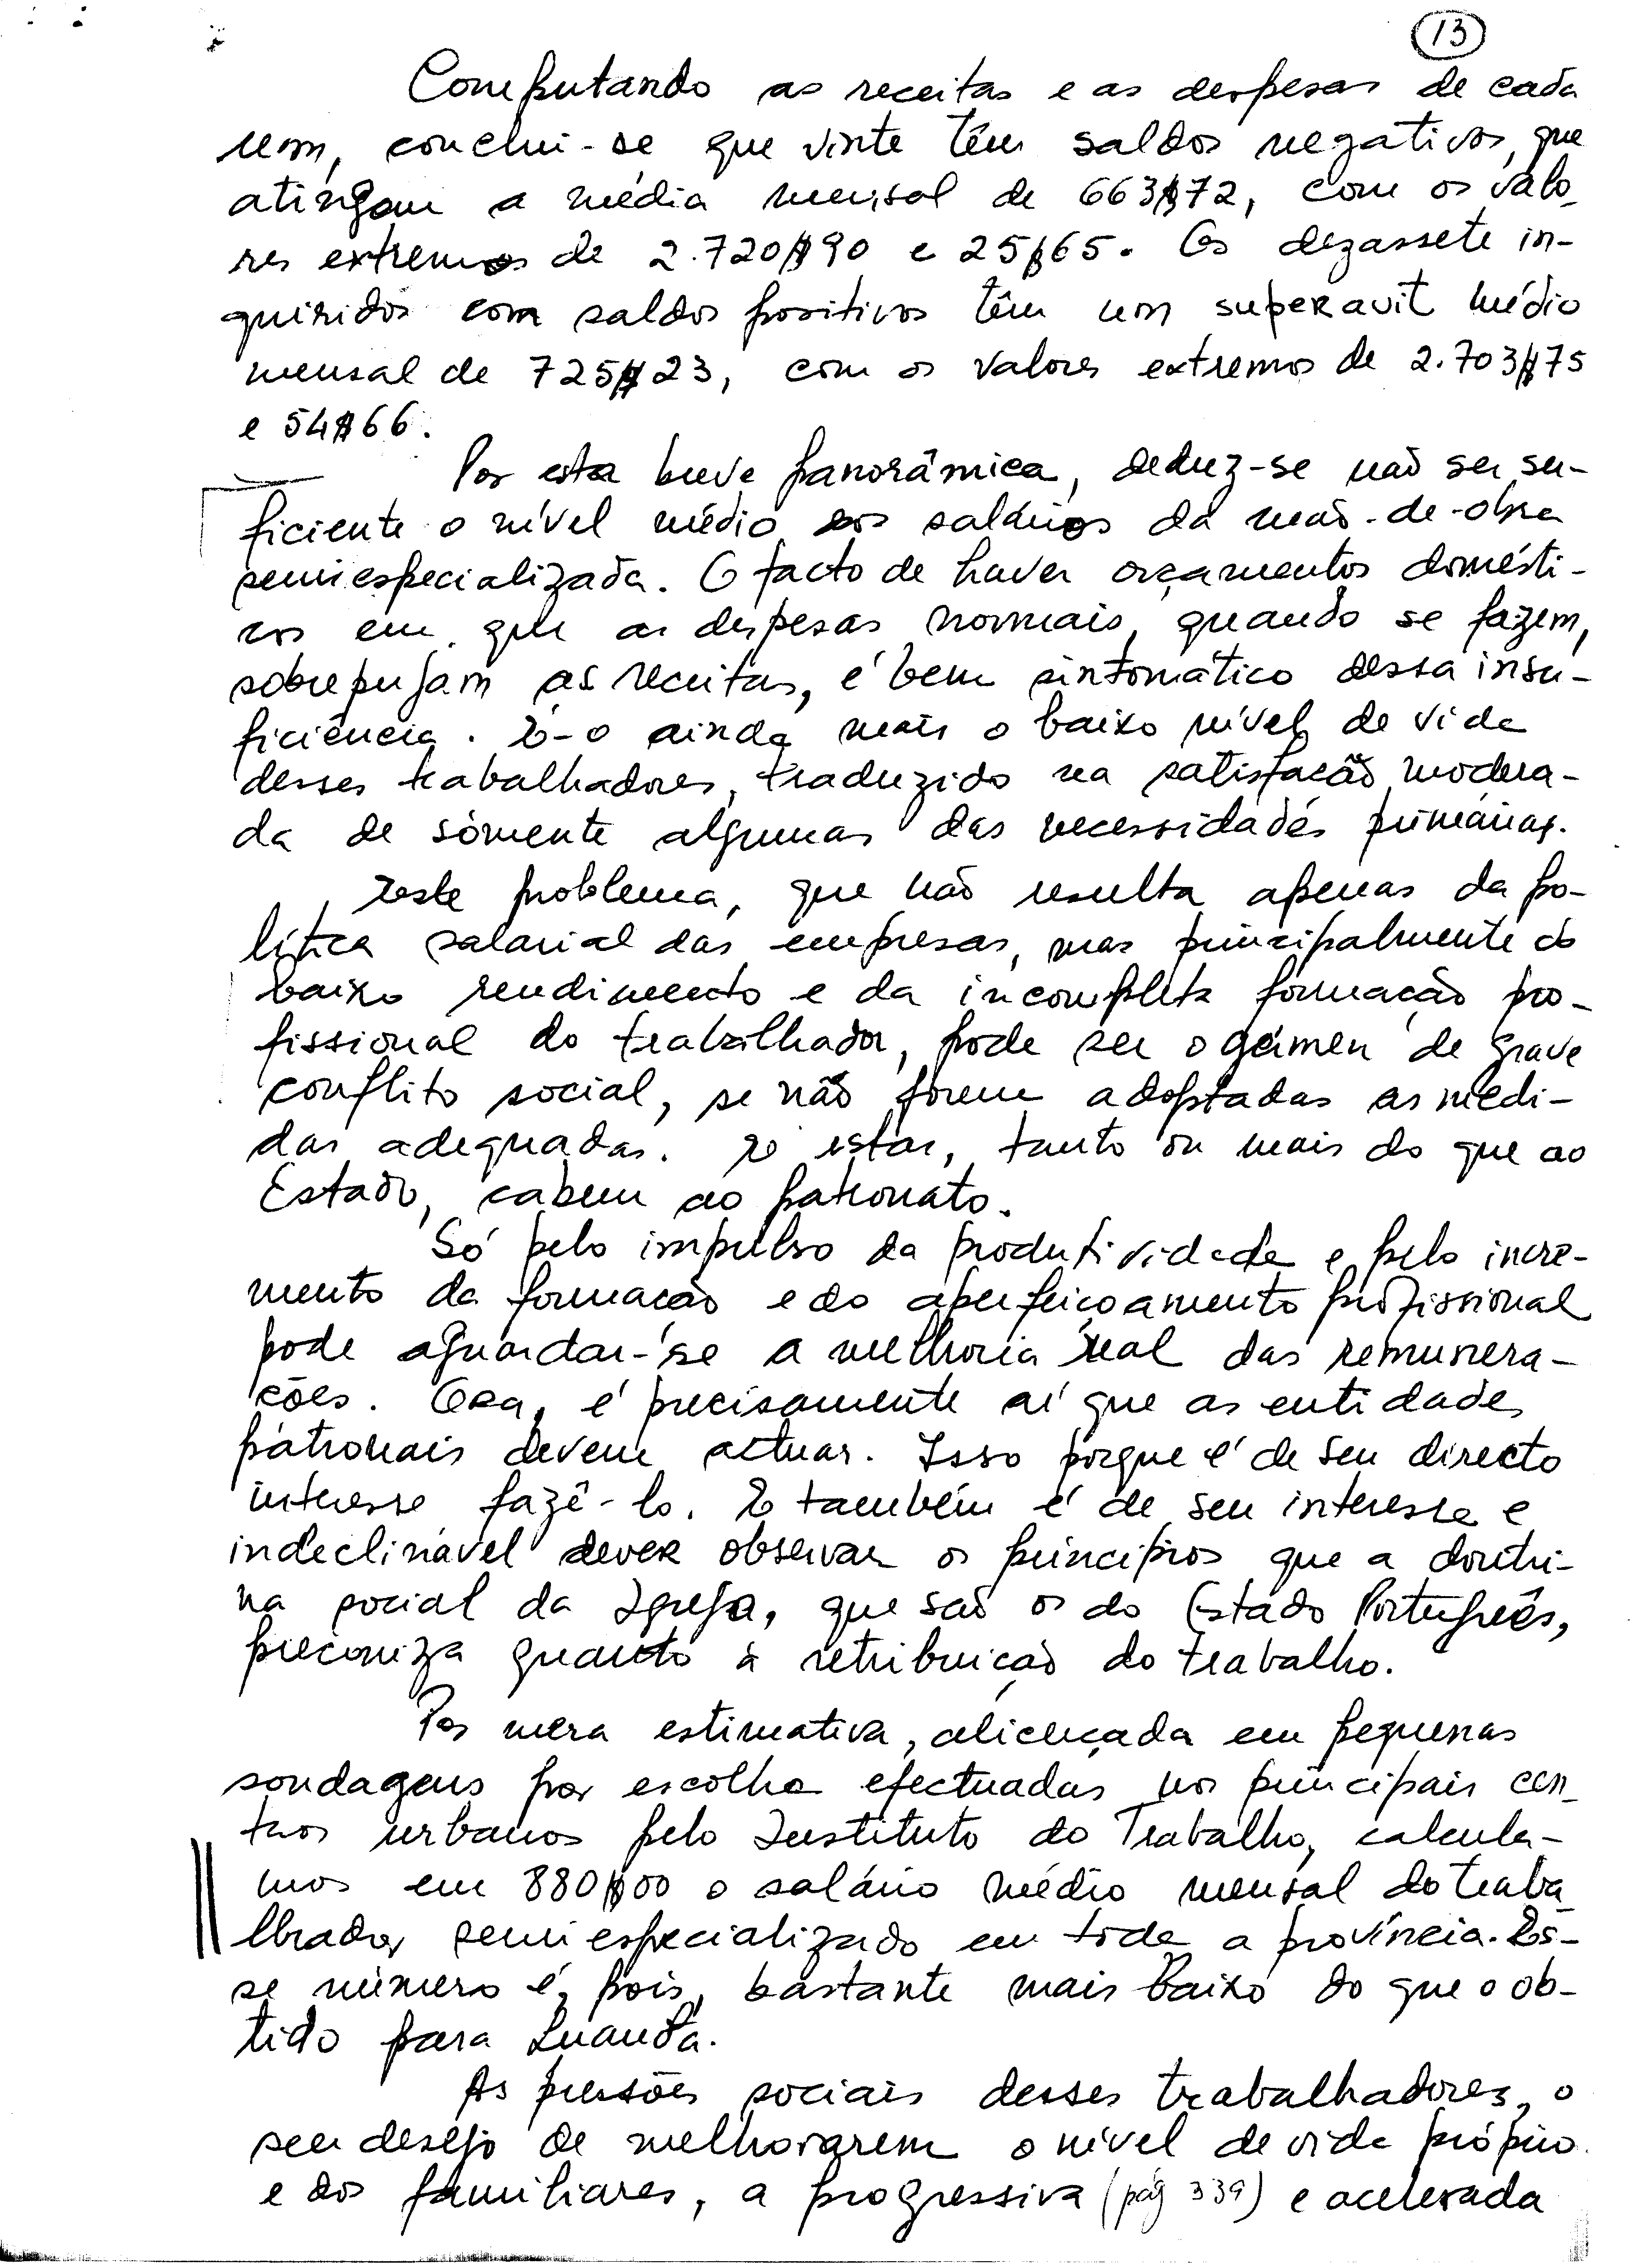 13
Computando as receitas e as despesas de cada
um, conclui-se que vinte têm saldos negativos, que
atingem a média mensal de 663$72, com os valo-
res extremos de 2.720$90 e 25$65. Os dezassete in-
quiridos com saldos positivos têm um superavit médio
mensal de 725$23, com os valores extremos de 2.703$75
e 54$66.
Por esta breve panorâmica, deduz-se não ser su-
ficiente o nível médio dos salários da mão-de-obra
semiespecializada. O facto de haver orçamentos domésti-
cos em que as despesas normais, quando se fazem,
sobrepujam as receitas, é bem sintomático dessa insu-
ficiência. E-o ainda mais o baixo nível de vida
desses trabalhadores, traduzido na satisfação modera-
da de sòmente algumas das necessidades primárias.
Este problema, que não resulta apenas da po-
lítica salarial das empresas, mas principalmente do
baixo rendimento e da incompleta formação pro-
fissional do trabalhador, pode ser o gérmen de grave
conflito social, se não forem adoptadas as medi-
das adequadas. E estas, tanto ou mais do que ao
Estado, cabem ao patronato.
Só pelo impulso da produtividade e pelo incre-
mento da formação e do aperfeiçoamento profissional
pode aguardar-se a melhoria real das remunera-
ções. Ora, é precisamente aí que as entidades
patronais devem actuar. Isso porque é de seu directo
interesse fazê-lo. E também é de seu interesse e
indeclinável dever observar os princípios que a doutri-
na social da Igreja, que são os do Estado Português,
preconiza quanto à retribuição do trabalho.
Por mera estimativa, alicerçada em pequenas
sondagens por escolha efectuadas nos principais cen-
tros urbanos pelo Instituto do Trabalho, calcula-
mos em 880$00 o salário médio mensal do traba
lhador semiespecializado em toda a província. Es-
se número é, pois, bastante mais baixo do que o ob-
tido para Luanda.
As pressões sociais desses trabalhadores, o
seu desejo de melhorarem o nível de vida próprio
e dos familiares, a progressiva (pág 339) e acelerada